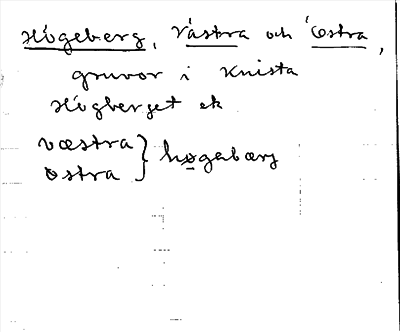 Högeberg, Västra och Östra,
gruvor i Knista
Högberget ek
væstra } høgabærj
østra